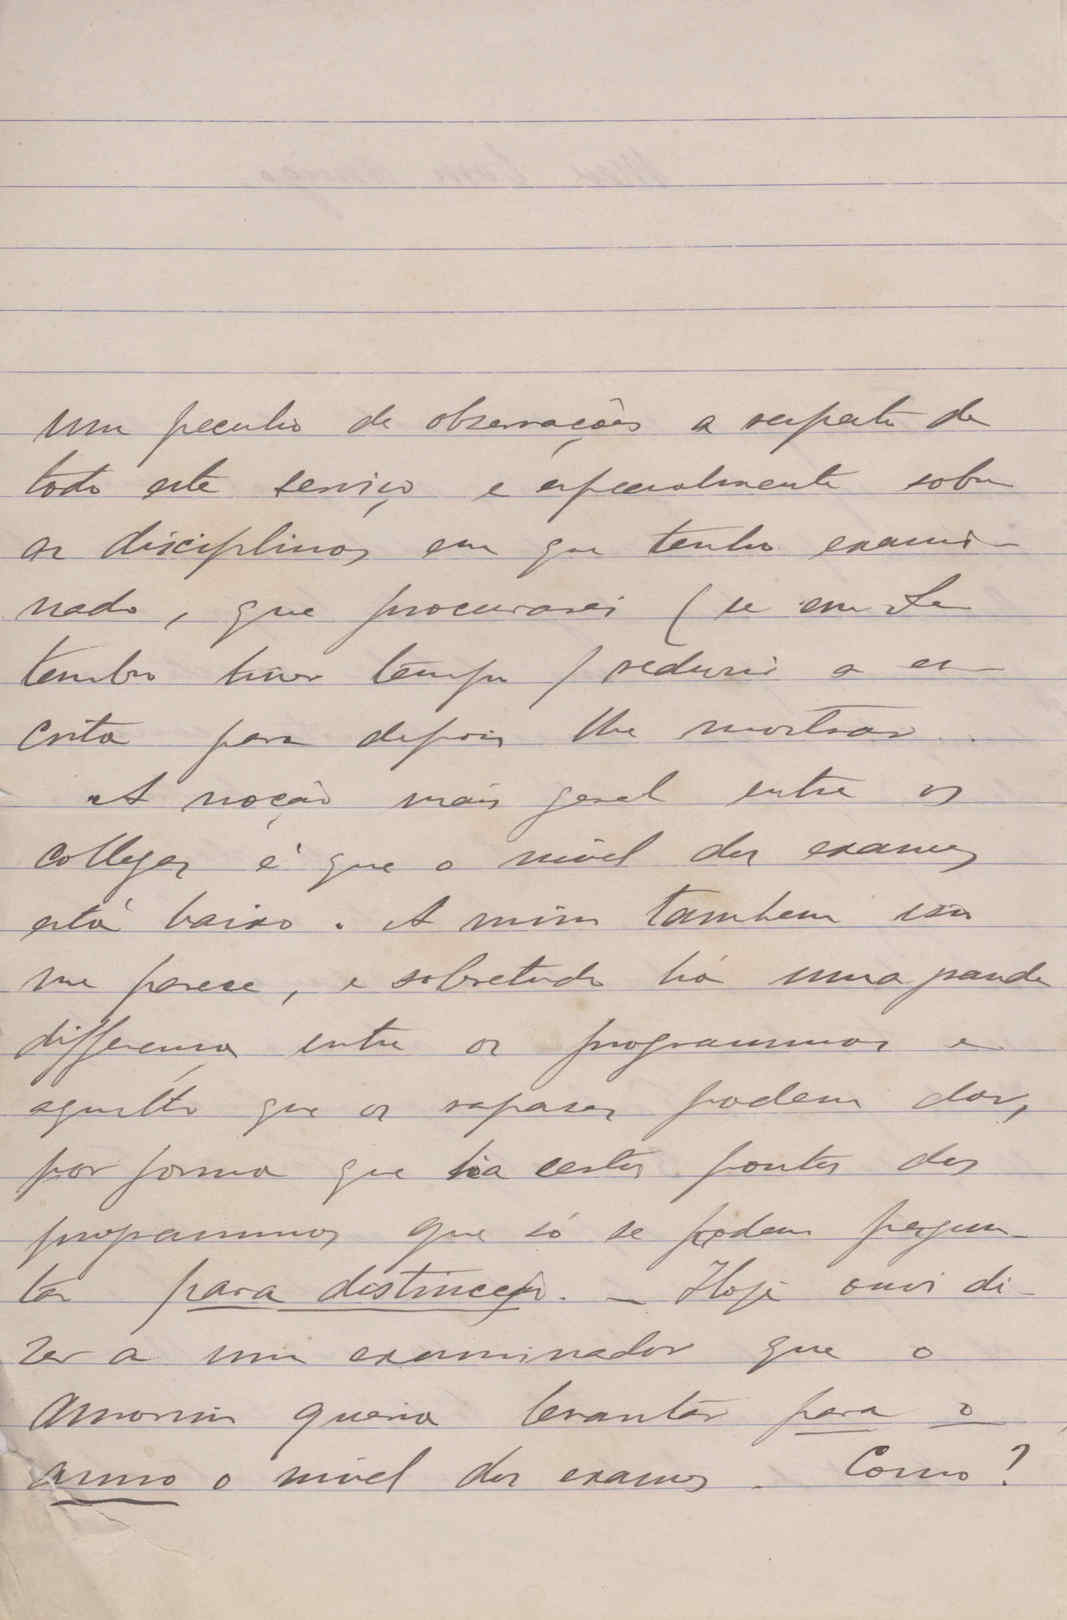 um peculio de observações a respeito de
todo este serviço e especialmente sobre
as disciplinas em que tenho exami-
nado, que procurarei (se em Se
tembro tiver tempo) reduzir a es-
crita para depois lhe mostrar.
A noção mais geral entre os
collegas é que o nivel dos exames
está baixo. A mim tambem isso
me parece, e sobretudo há uma grande
differença entre os programmas e
aquillo que os rapases podem dar,
por forma que ha certos pontos dos
programmas que só se podem pergun-
tar para distincção. — Hoje ouvi di-
zer a um examinador que o
Amorim queria levantar para o
anno o nivel dos exames. Como?